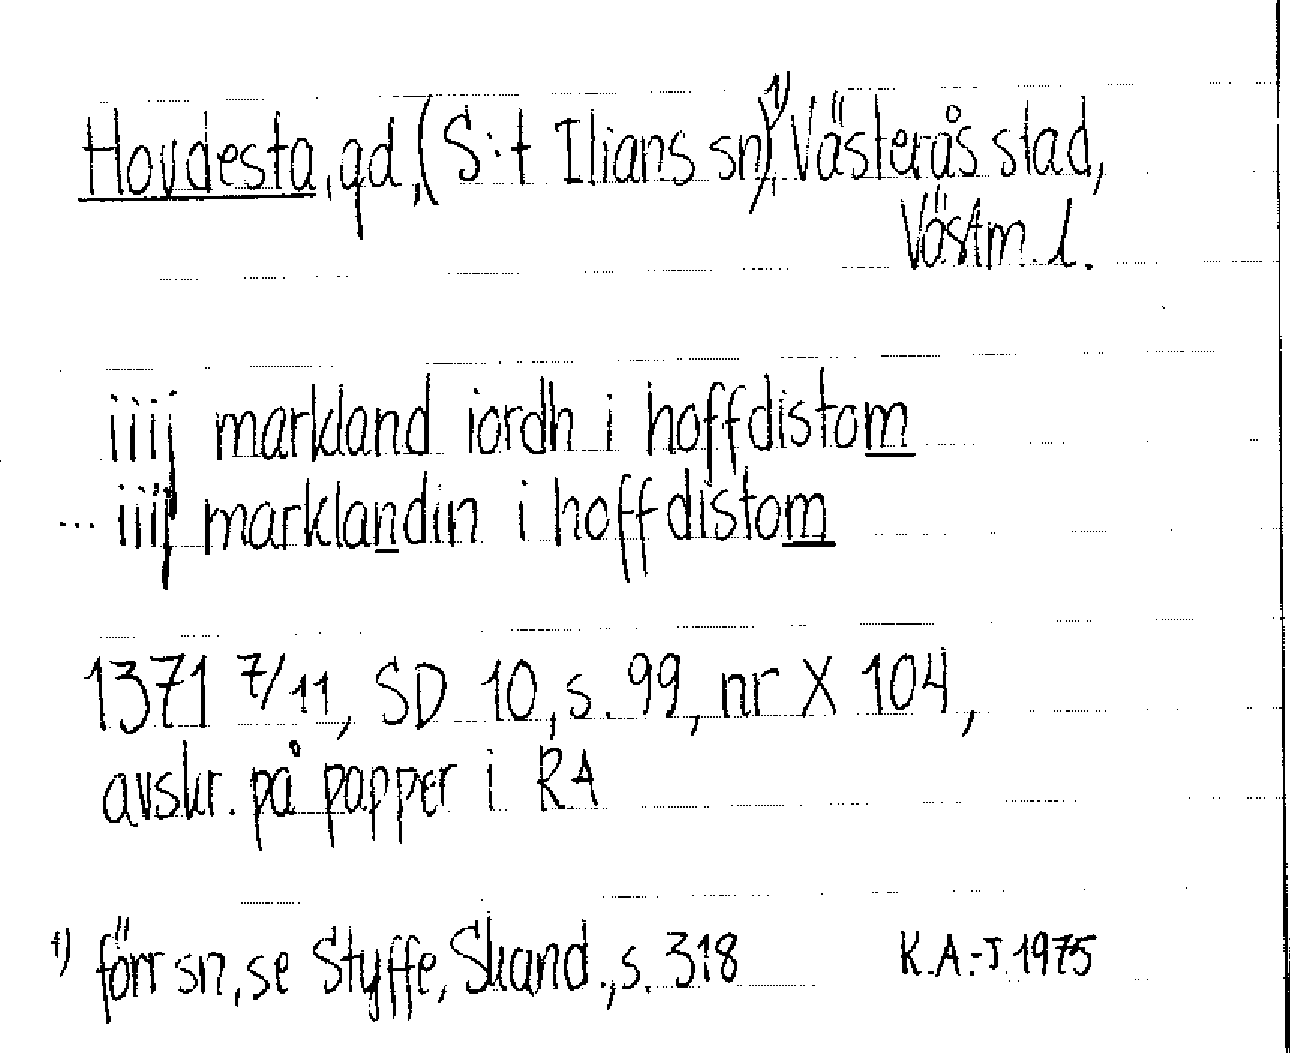 Hovdesta, gd, (S:t Ilians sn)¹⁾, Västerås stad,
Västm. l.
iiij markland iordh i hoffdistom
... iiij marklandin i hoffdistom
1371 7/11, SD 10, s. 99, nr X 104,
avskr. på papper i RA
1) förr sn, se Styffe, Skand., s. 318 K.A.-J 1975